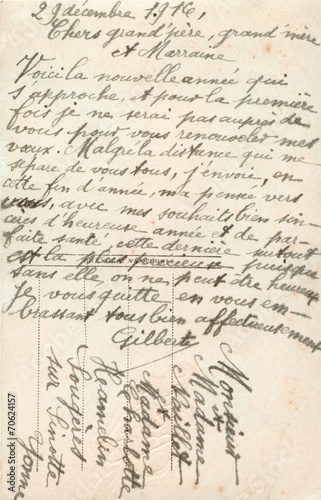 29 décembre 1916,
Chers grand'père, grand'mère
et Marraine
Voici la nouvelle année qui
s'approche, et pour la première
fois je ne serai pas auprès de
vous pour vous renouveler mes
vœux. Malgré la distance qui me
sépare de vous tous, j'envoie, en
cette fin d'année, ma pensée vers
vous, avec mes souhaits bien sin-
cères d'heureuse année et de par-
faite santé, cette dernière surtout
est la plus précieuse puisque
sans elle, on ne peut être heureux
Je vous quitte en vous em-
brassant tous bien affectueusement
Gilbert
Monsieur
et Madame
Paillot
Madame
Charlotte
Hamelin
Fougères
sur Linotte
Yonne
Adobe Stock | #70624157